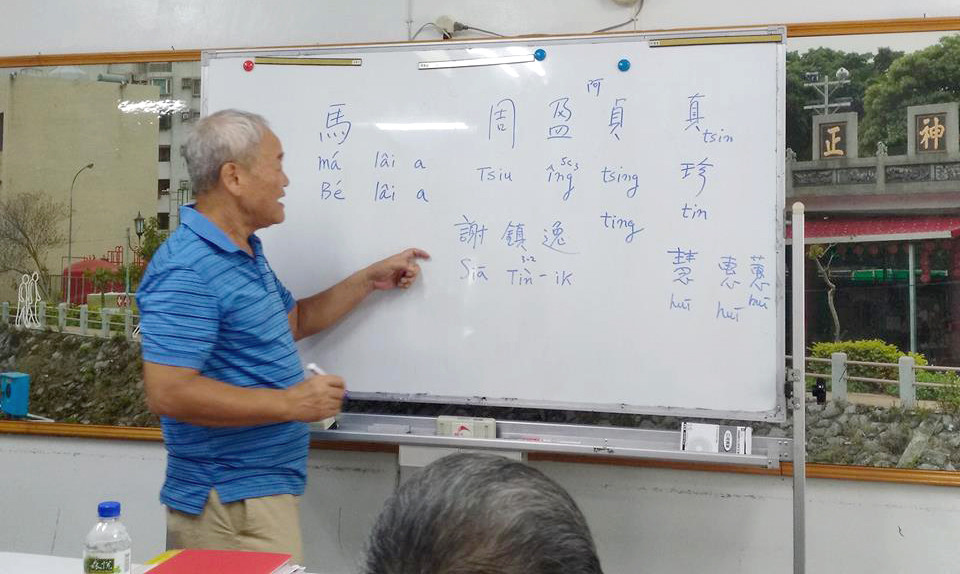 馬
má lâi a
Bé lâi a
周 盈 阿 貞
Tsiu îng tsing
ting
謝 鎮 逸
Siā Tìn-ik
1-2
真 tsin
珍
tin
慧 惠 蕙
huī huī huī
正 神